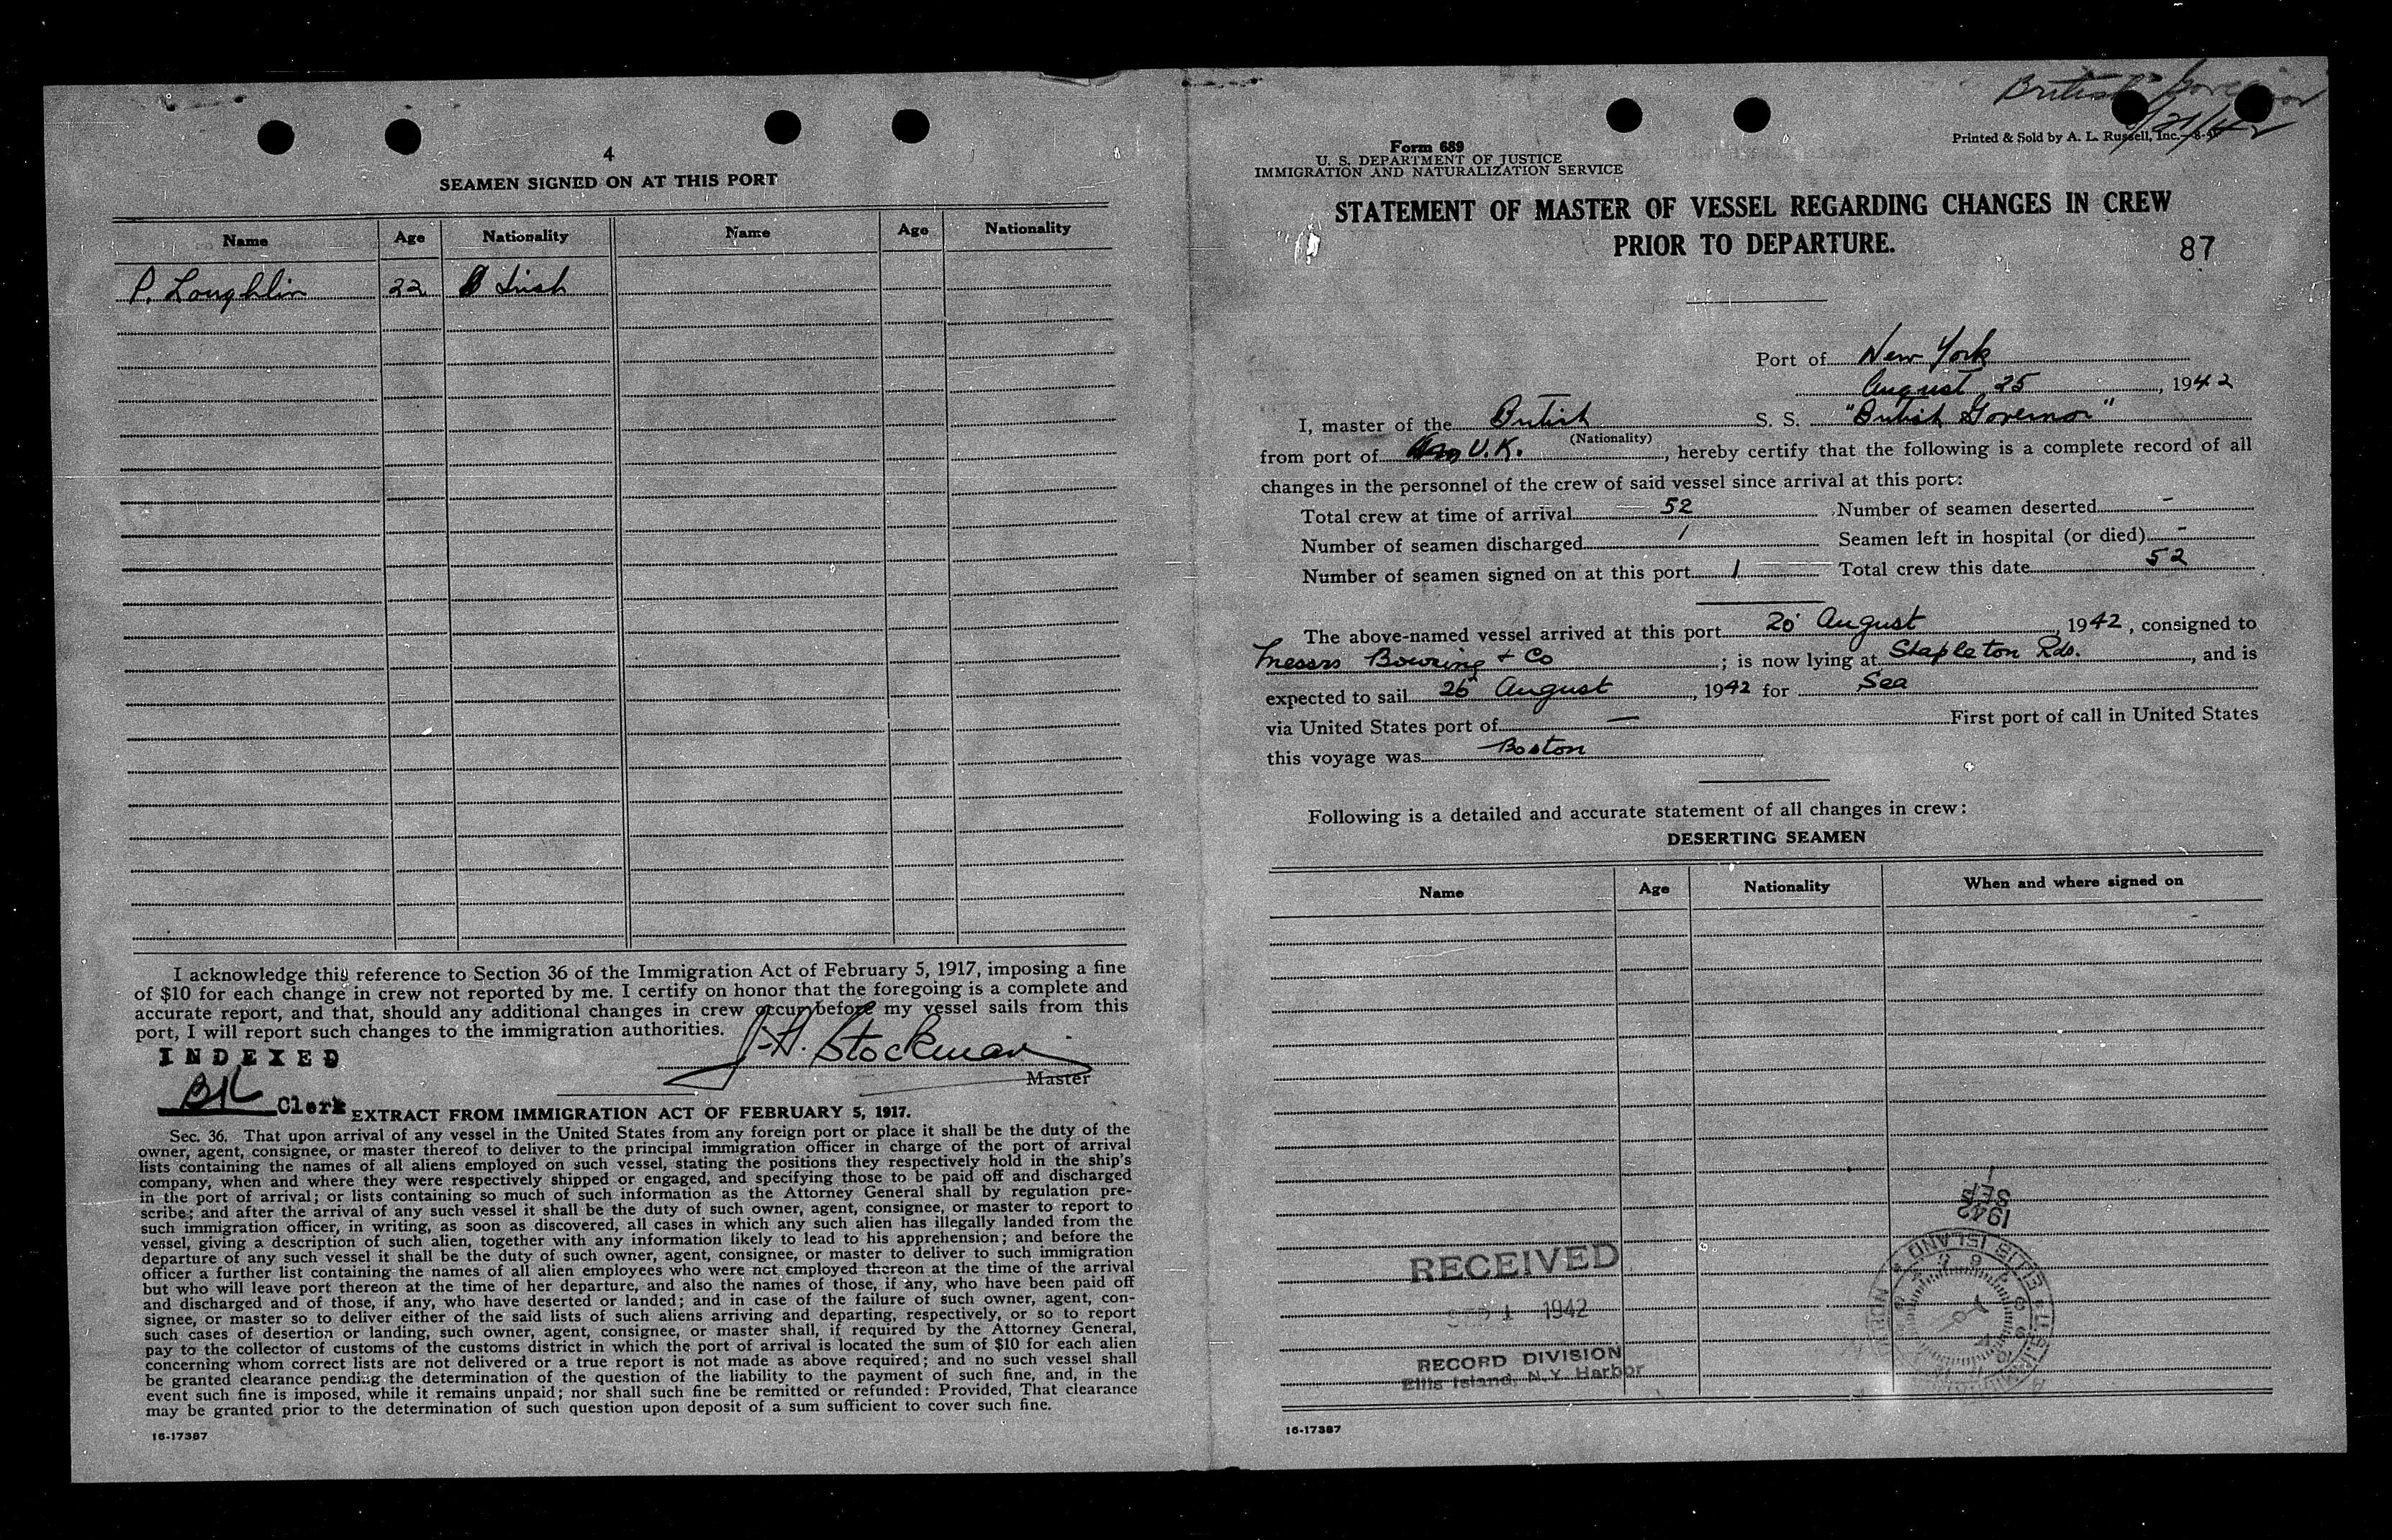 4
SEAMEN SIGNED ON AT THIS PORT
Name Age Nationality Name Age Nationality
P. Loughlin 22 Irish
I acknowledge this reference to Section 36 of the Immigration Act of February 5, 1917, imposing a fine
of $10 for each change in crew not reported by me. I certify on honor that the foregoing is a complete and
accurate report, and that, should any additional changes in crew occur before my vessel sails from this
port, I will report such changes to the immigration authorities.
J. H. Stockman
Master
INDEXED
BK Clerk
EXTRACT FROM IMMIGRATION ACT OF FEBRUARY 5, 1917.
Sec. 36. That upon arrival of any vessel in the United States from any foreign port or place it shall be the duty of the
owner, agent, consignee, or master thereof to deliver to the principal immigration officer in charge of the port of arrival
lists containing the names of all aliens employed on such vessel, stating the positions they respectively hold in the ship's
company, when and where they were respectively shipped or engaged, and specifying those to be paid off and discharged
in the port of arrival; or lists containing so much of such information as the Attorney General shall by regulation pre-
scribe; and after the arrival of any such vessel it shall be the duty of such owner, agent, consignee, or master to report to
such immigration officer, in writing, as soon as discovered, all cases in which any such alien has illegally landed from the
vessel, giving a description of such alien, together with any information likely to lead to his apprehension; and before the
departure of any such vessel it shall be the duty of such owner, agent, consignee, or master to deliver to such immigration
officer a further list containing the names of all alien employees who were not employed thereon at the time of the arrival
but who will leave port thereon at the time of her departure, and also the names of those, if any, who have been paid off
and discharged and of those, if any, who have deserted or landed; and in case of the failure of such owner, agent, con-
signee, or master so to deliver either of the said lists of such aliens arriving and departing, respectively, or so to report
such cases of desertion or landing, such owner, agent, consignee, or master shall, if required by the Attorney General,
pay to the collector of customs of the customs district in which the port of arrival is located the sum of $10 for each alien
concerning whom correct lists are not delivered or a true report is not made as above required; and no such vessel shall
be granted clearance pending the determination of the question of the liability to the payment of such fine, and, in the
event such fine is imposed, while it remains unpaid; nor shall such fine be remitted or refunded: Provided, That clearance
may be granted prior to the determination of such question upon deposit of a sum sufficient to cover such fine.
16-17387
British Governor
Printed & Sold by A. L. Russell, Inc.
Form 689
U. S. DEPARTMENT OF JUSTICE
IMMIGRATION AND NATURALIZATION SERVICE
STATEMENT OF MASTER OF VESSEL REGARDING CHANGES IN CREW
PRIOR TO DEPARTURE.
87
Port of New York
August 25, 1942
I, master of the British S. S. "British Governor"
(Nationality)
from port of U.K., hereby certify that the following is a complete record of all
changes in the personnel of the crew of said vessel since arrival at this port:
Total crew at time of arrival 52 Number of seamen deserted -
Number of seamen discharged 1 Seamen left in hospital (or died) -
Number of seamen signed on at this port 1 Total crew this date 52
The above-named vessel arrived at this port 20 August 1942, consigned to
Messrs Bowring + Co; is now lying at Stapleton Rds., and is
expected to sail 26 August, 1942 for Sea
via United States port of — First port of call in United States
this voyage was Boston
Following is a detailed and accurate statement of all changes in crew:
DESERTING SEAMEN
Name Age Nationality When and where signed on
1942 SEP 1
ELLIS ISLAND
RECEIVED
SEP 1 1942
RECORD DIVISION
Ellis Island, N.Y. Harbor
16-17387